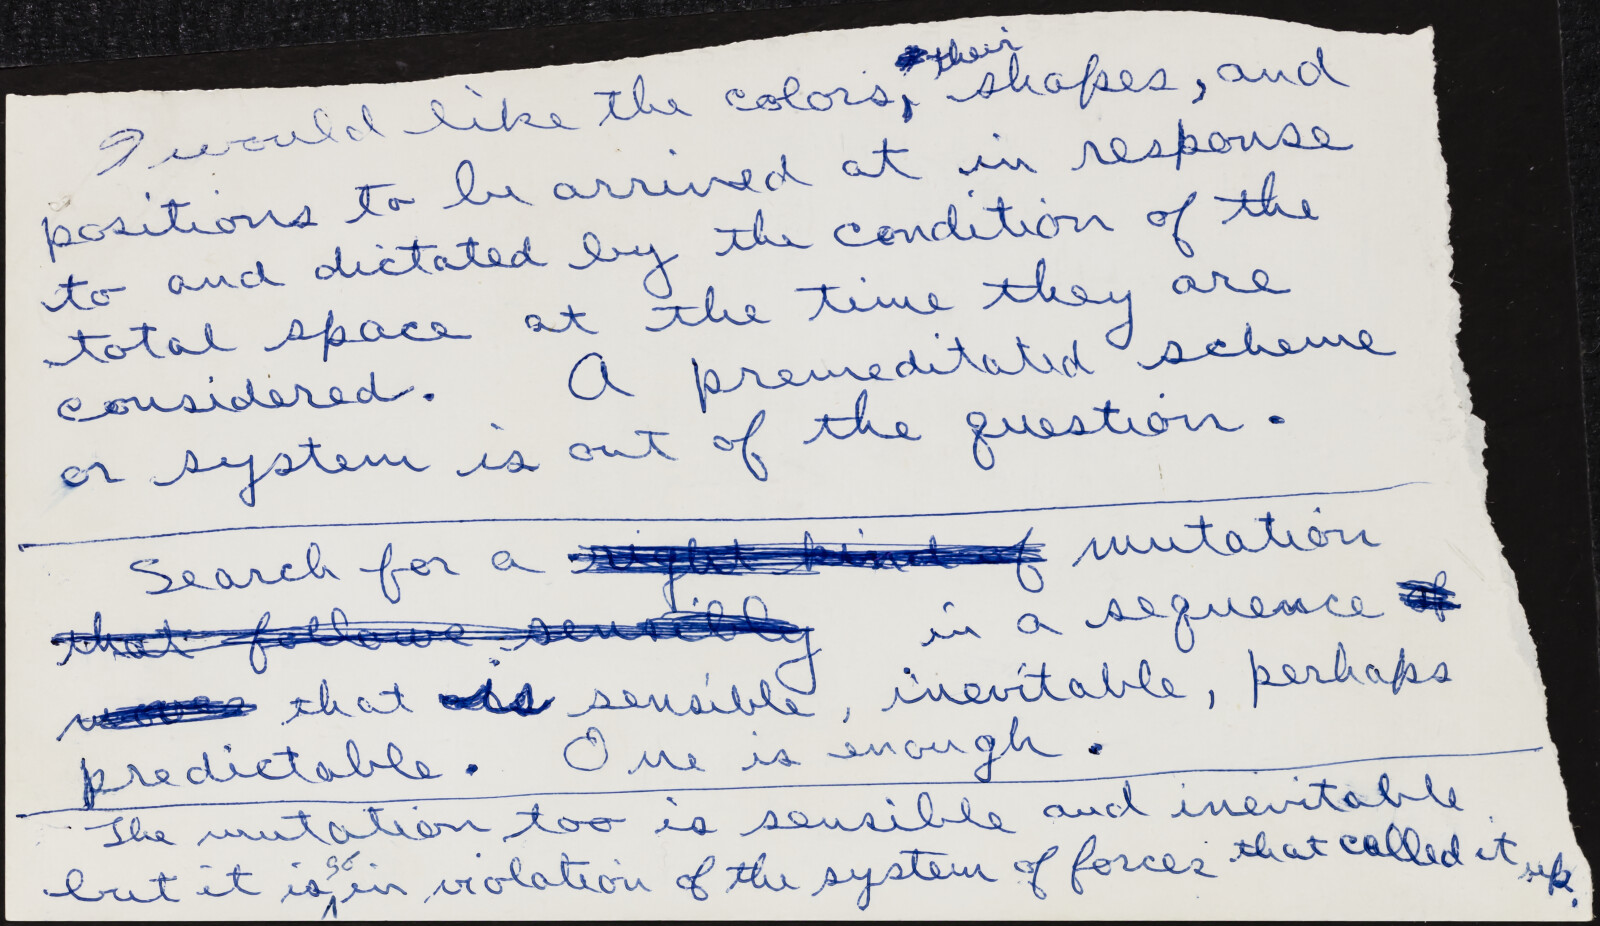 I would like the colors, their shapes, and
positions to be arrived at in response
to and dictated by the condition of the
total space at the time they are
considered. A premeditated scheme
or system is out of the question.
Search for a right kind of mutation
that follows sensibly in a sequence of
that is sensible, inevitable, perhaps
predictable. One is enough.
The mutation too is sensible and inevitable
but it is in violation of the system of forces that called it up.